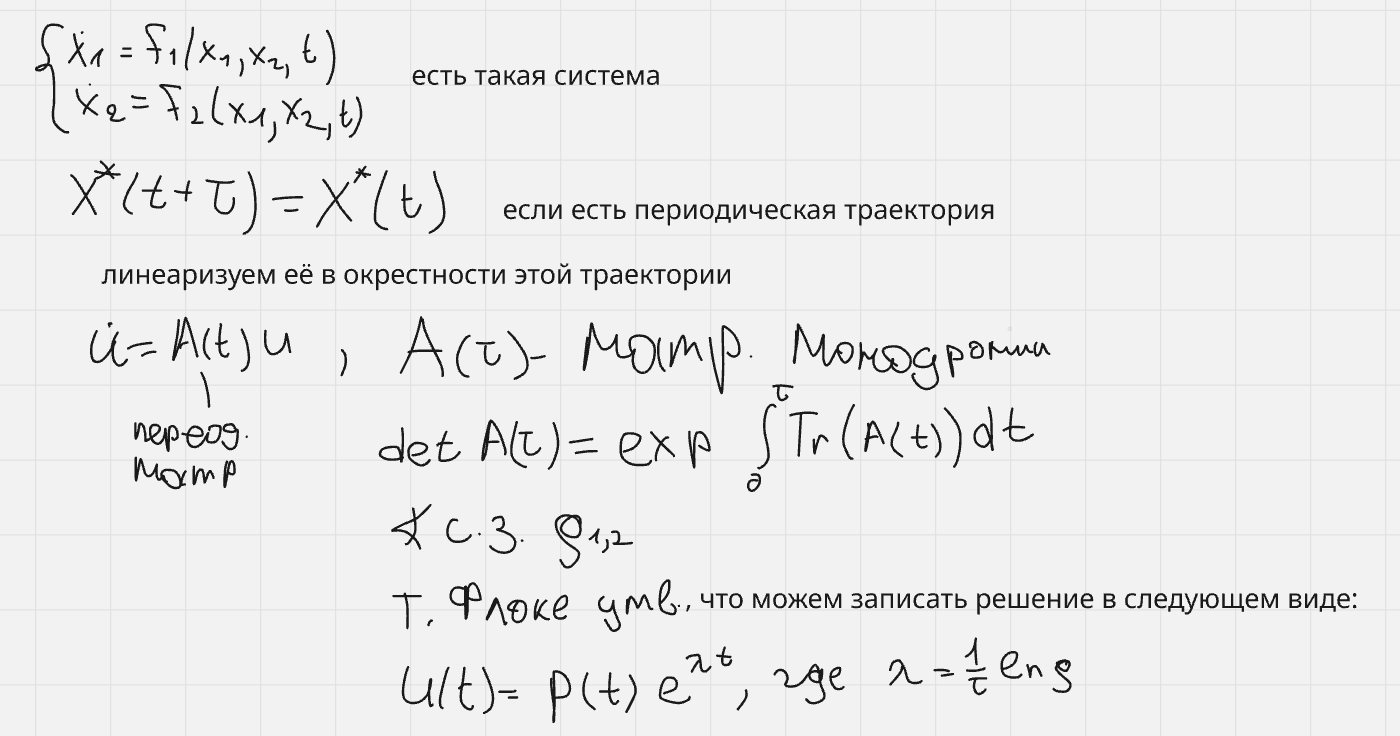 ẋ₁ = f₁(x₁, x₂, t)
есть такая система
ẋ₂ = f₂(x₁, x₂, t)
X*(t+τ) = X*(t) если есть периодическая траектория
линеаризуем её в окрестности этой траектории
u̇ = A(t) u , A(τ) - матр. монодромии
период.
матр
det A(τ) = exp ∫₀^τ Tr(A(t)) dt
∢ с.з. ρ₁,₂
Т. Флоке утв., что можем записать решение в следующем виде:
u(t) = p(t) e^{λt}, где λ = 1/τ ln ρ